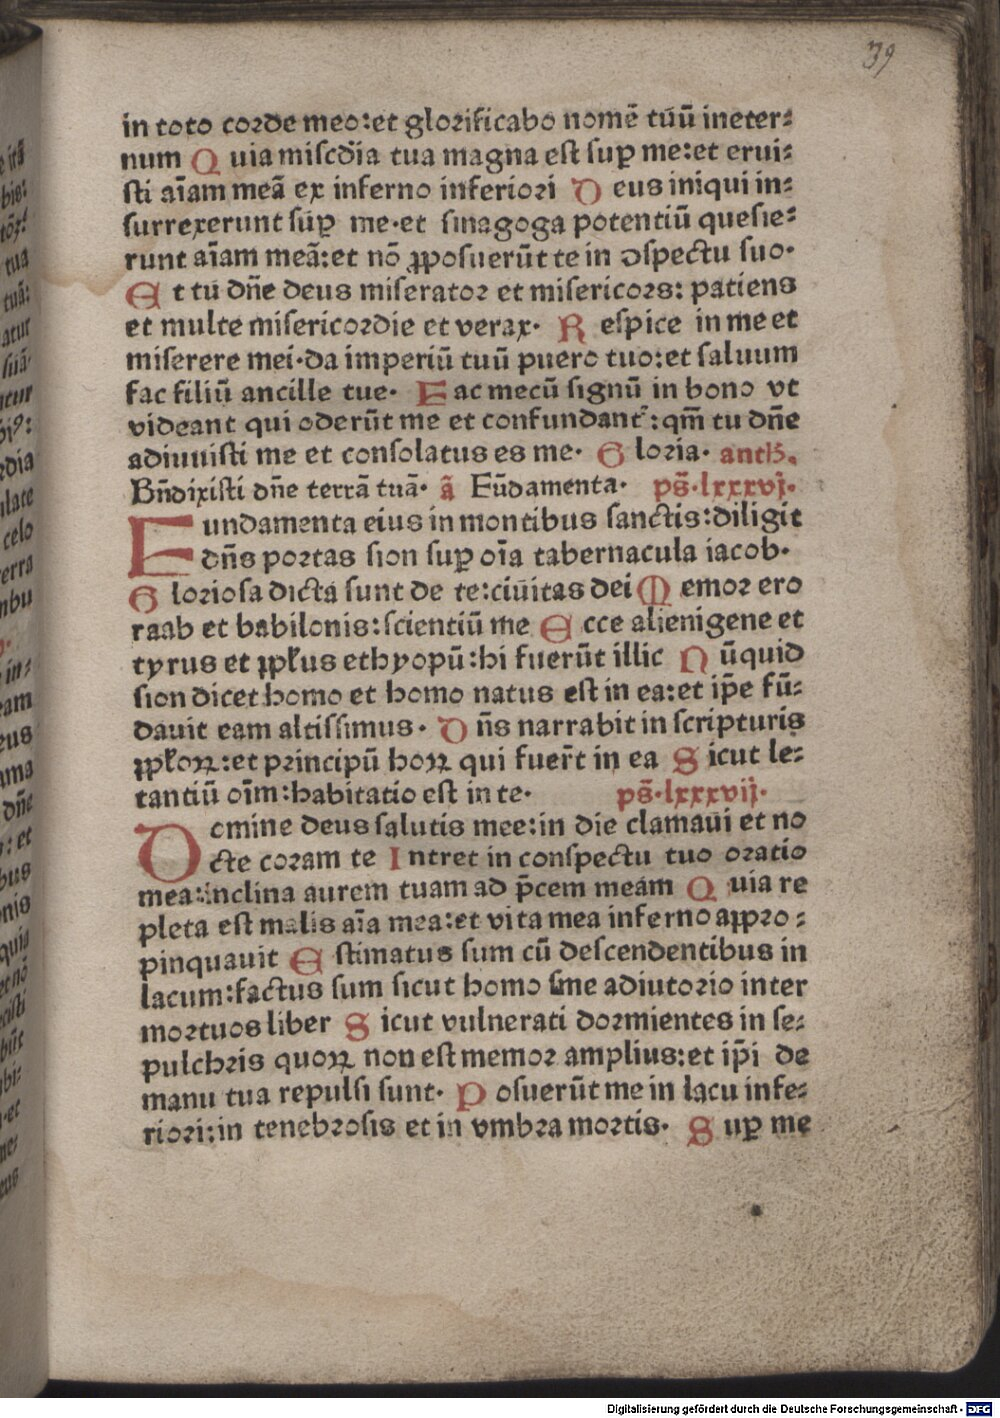 39
in toto corde meo:et glorificabo nomē tuū ineter⸗
num Q uia miscd̄ia tua magna est suꝑ me:et erui⸗
sti aīam meā ex inferno inferiori D eus iniqui in⸗
surrexerunt suꝑ me·et sinagoga potentiū quesie⸗
runt aīam meā:et nō ꝓposuerūt te in ɔspectu suo·
E t tu dn̄e deus miserator et misericors: patiens
et multe misericordie et verax· R espice in me et
miserere mei·da imperiū tuū puero tuo:et saluum
fac filiū ancille tue· F ac mecū signū in bono vt
videant qui oderūt me et confundant᷑:qm̄ tu dn̄e
adiuuisti me et consolatus es me· G loria· anth.
Bn̄dixisti dn̄e terrā tuā· ā Fūdamenta· ps̄·lxxxvj·
Fundamenta eius in montibus sanctis:diligit
dn̄s portas sion suꝑ oīa tabernacula iacob·
G loriosa dicta sunt de te:ciuitas dei M emor ero
raab et babilonis:scientiū me E cce alienigene et
tyrus et ꝓpl̄us ethyopū:hi fuerūt illic N ūquid
sion dicet homo et homo natus est in ea:et ip̄e fū⸗
dauit eam altissimus· D n̄s narrabit in scripturis
ppl̄oꝝ:et principū hoꝝ qui fuer̄t in ea S icut le⸗
tantiū oīm:habitatio est in te· ps̄·lxxxvij·
Domine deus salutis mee:in die clamaui et no
cte coram te I ntret in conspectu tuo oratio
mea:inclina aurem tuam ad p̄cem meam Q uia re
pleta est malis aīa mea:et vita mea inferno appro⸗
pinquauit E stimatus sum cū descendentibus in
lacum:factus sum sicut homo sine adiutorio inter
mortuos liber S icut vulnerati dormientes in se⸗
pulchris quoꝝ non est memor amplius:et ip̄i de
manu tua repulsi sunt· P osuerūt me in lacu infe⸗
riori:in tenebrosis et in vmbra mortis· S uꝑ me
Digitalisierung gefördert durch die Deutsche Forschungsgemeinschaft - DFG